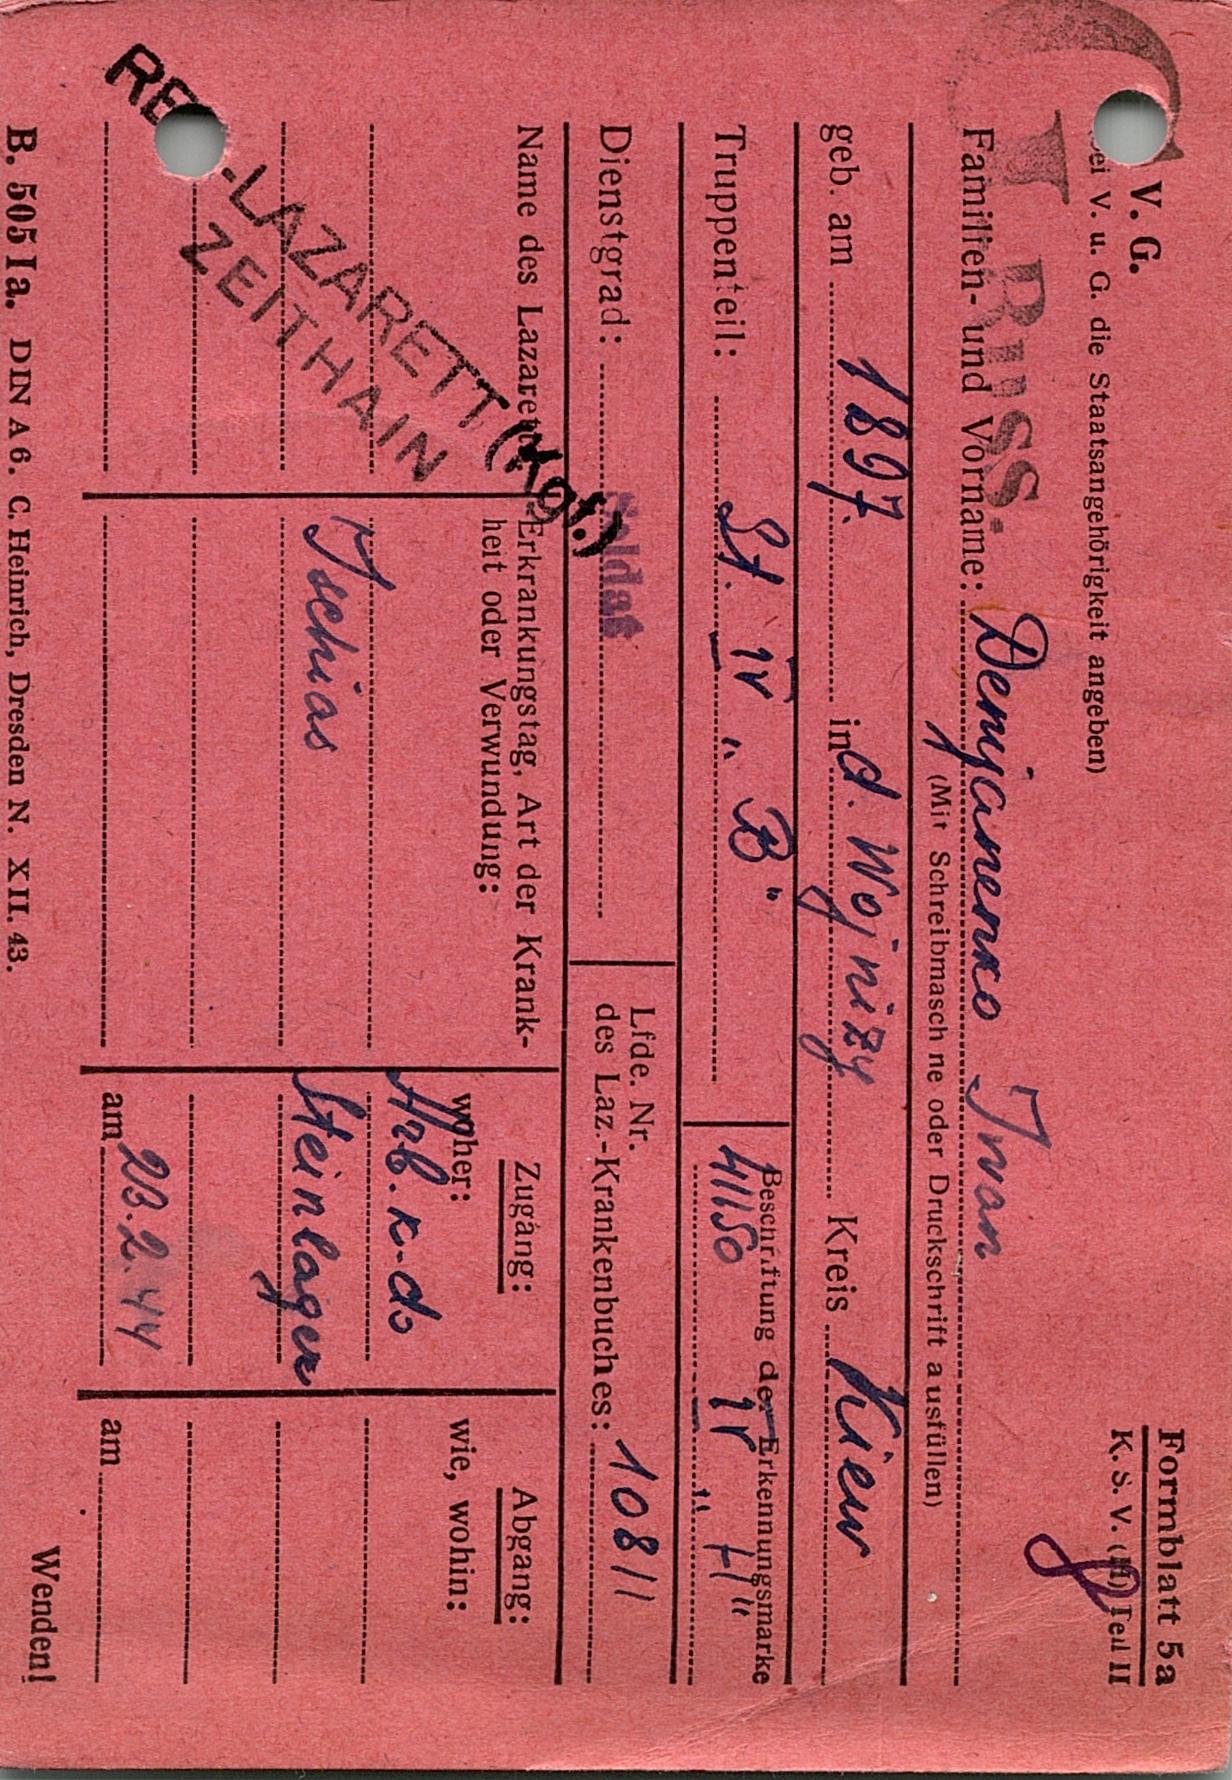 V. G.
Formblatt 5a
K. S. V. (H) Teil II
ei V. u. G. die Staatsangehörigkeit angeben)
G
RUSS.
8
Familien- und Vorname: Demjanenko Iwan
(Mit Schreibmaschine oder Druckschrift ausfüllen)
geb. am 1897. in d. Wojnizy Kreis Kiew
Truppenteil: St. IV „B"
Beschriftung der Erkennungsmarke
41150 IV „H"
Dienstgrad: Soldat
Lfde. Nr.
des Laz.-Krankenbuches: 10811
Name des Lazaretts
RE -LAZARETT (Kgf.)
ZEITHAIN
Erkrankungstag, Art der Krank-
heit oder Verwundung:
Ischias
Zugang:
woher:
Arb. K-do
Steinlager
am 23.2.44
Abgang:
wie, wohin:
am
B. 505 Ia. DIN A 6. C. Heinrich, Dresden N. XII. 43.
Wenden!